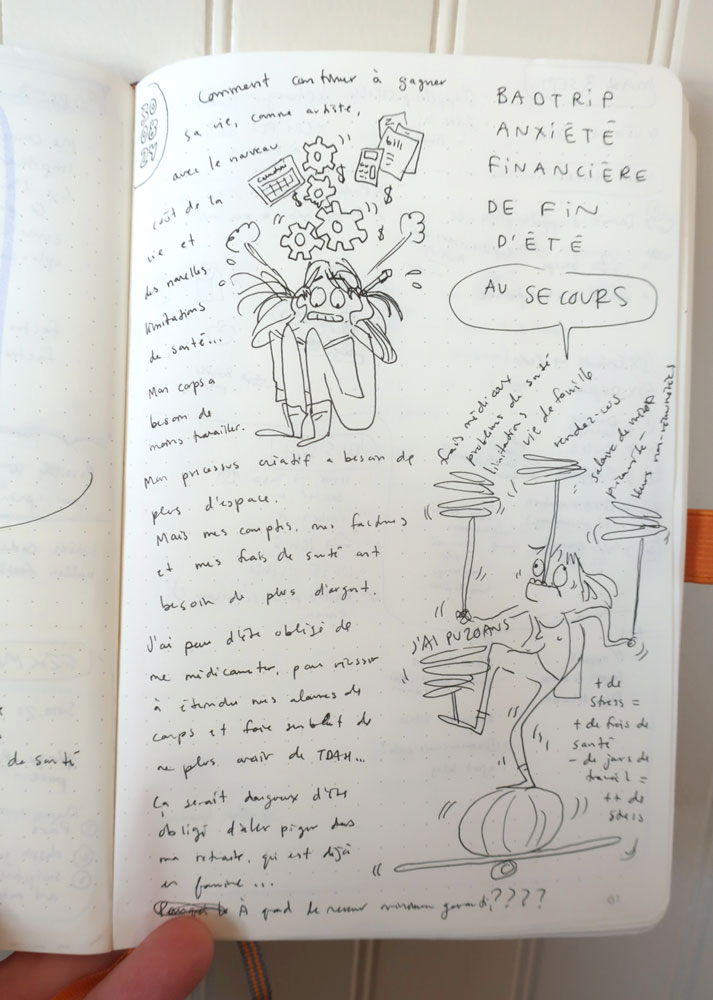 30
08
24
Comment continuer à gagner
sa vie, comme artiste,
avec le nouveau
coût de la
vie et
des nouvelles
limitations
de santé...
Mon corps a
besoin de
moins travailler.
Mon processus créatif a besoin de
plus d'espace.
Mais mes comptes, mes factures
et mes frais de santé ont
besoin de plus d'argent.
J'ai peur d'être obligé de
me médicamenter, pour réussir
à étendre mes alarmes de
corps et faire semblant de
ne plus avoir de TDAH...
Ça serait dangereux d'être
obligé d'aller piger dans
ma retraite, qui est déjà
en famine...
À quand le revenu minimum garanti,????
calendrier
bill
$
$
$
$
BADTRIP
ANXIÉTÉ
FINANCIÈRE
DE FIN
D'ÉTÉ
AU SECOURS
frais médicaux
problèmes de santé
limitations
vie de famille
rendez-vous
salaire de
heures non-rémunérées
J'AI PU 20 ANS
+ de
stress =
+ de frais de
santé
- de jours de
travail =
++ de
stress
de santé